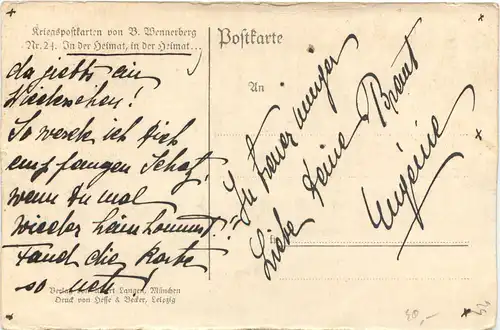 Kriegspostkarten von B. Wennerberg
Nr. 24. In der Heimat, in der Heimat...
da giebts ein
Wiedersehen!
So werde ich Dich
empfangen Schatz,
wenn Du mal
wieder heim kommst!!
Fand die Karte
so nett!
Verlag von Albert Langen, München
Druck von Hesse & Becker, Leipzig
Postkarte
An
In treuer inniger
Liebe Deine Braut
Eugénie
in
30,–